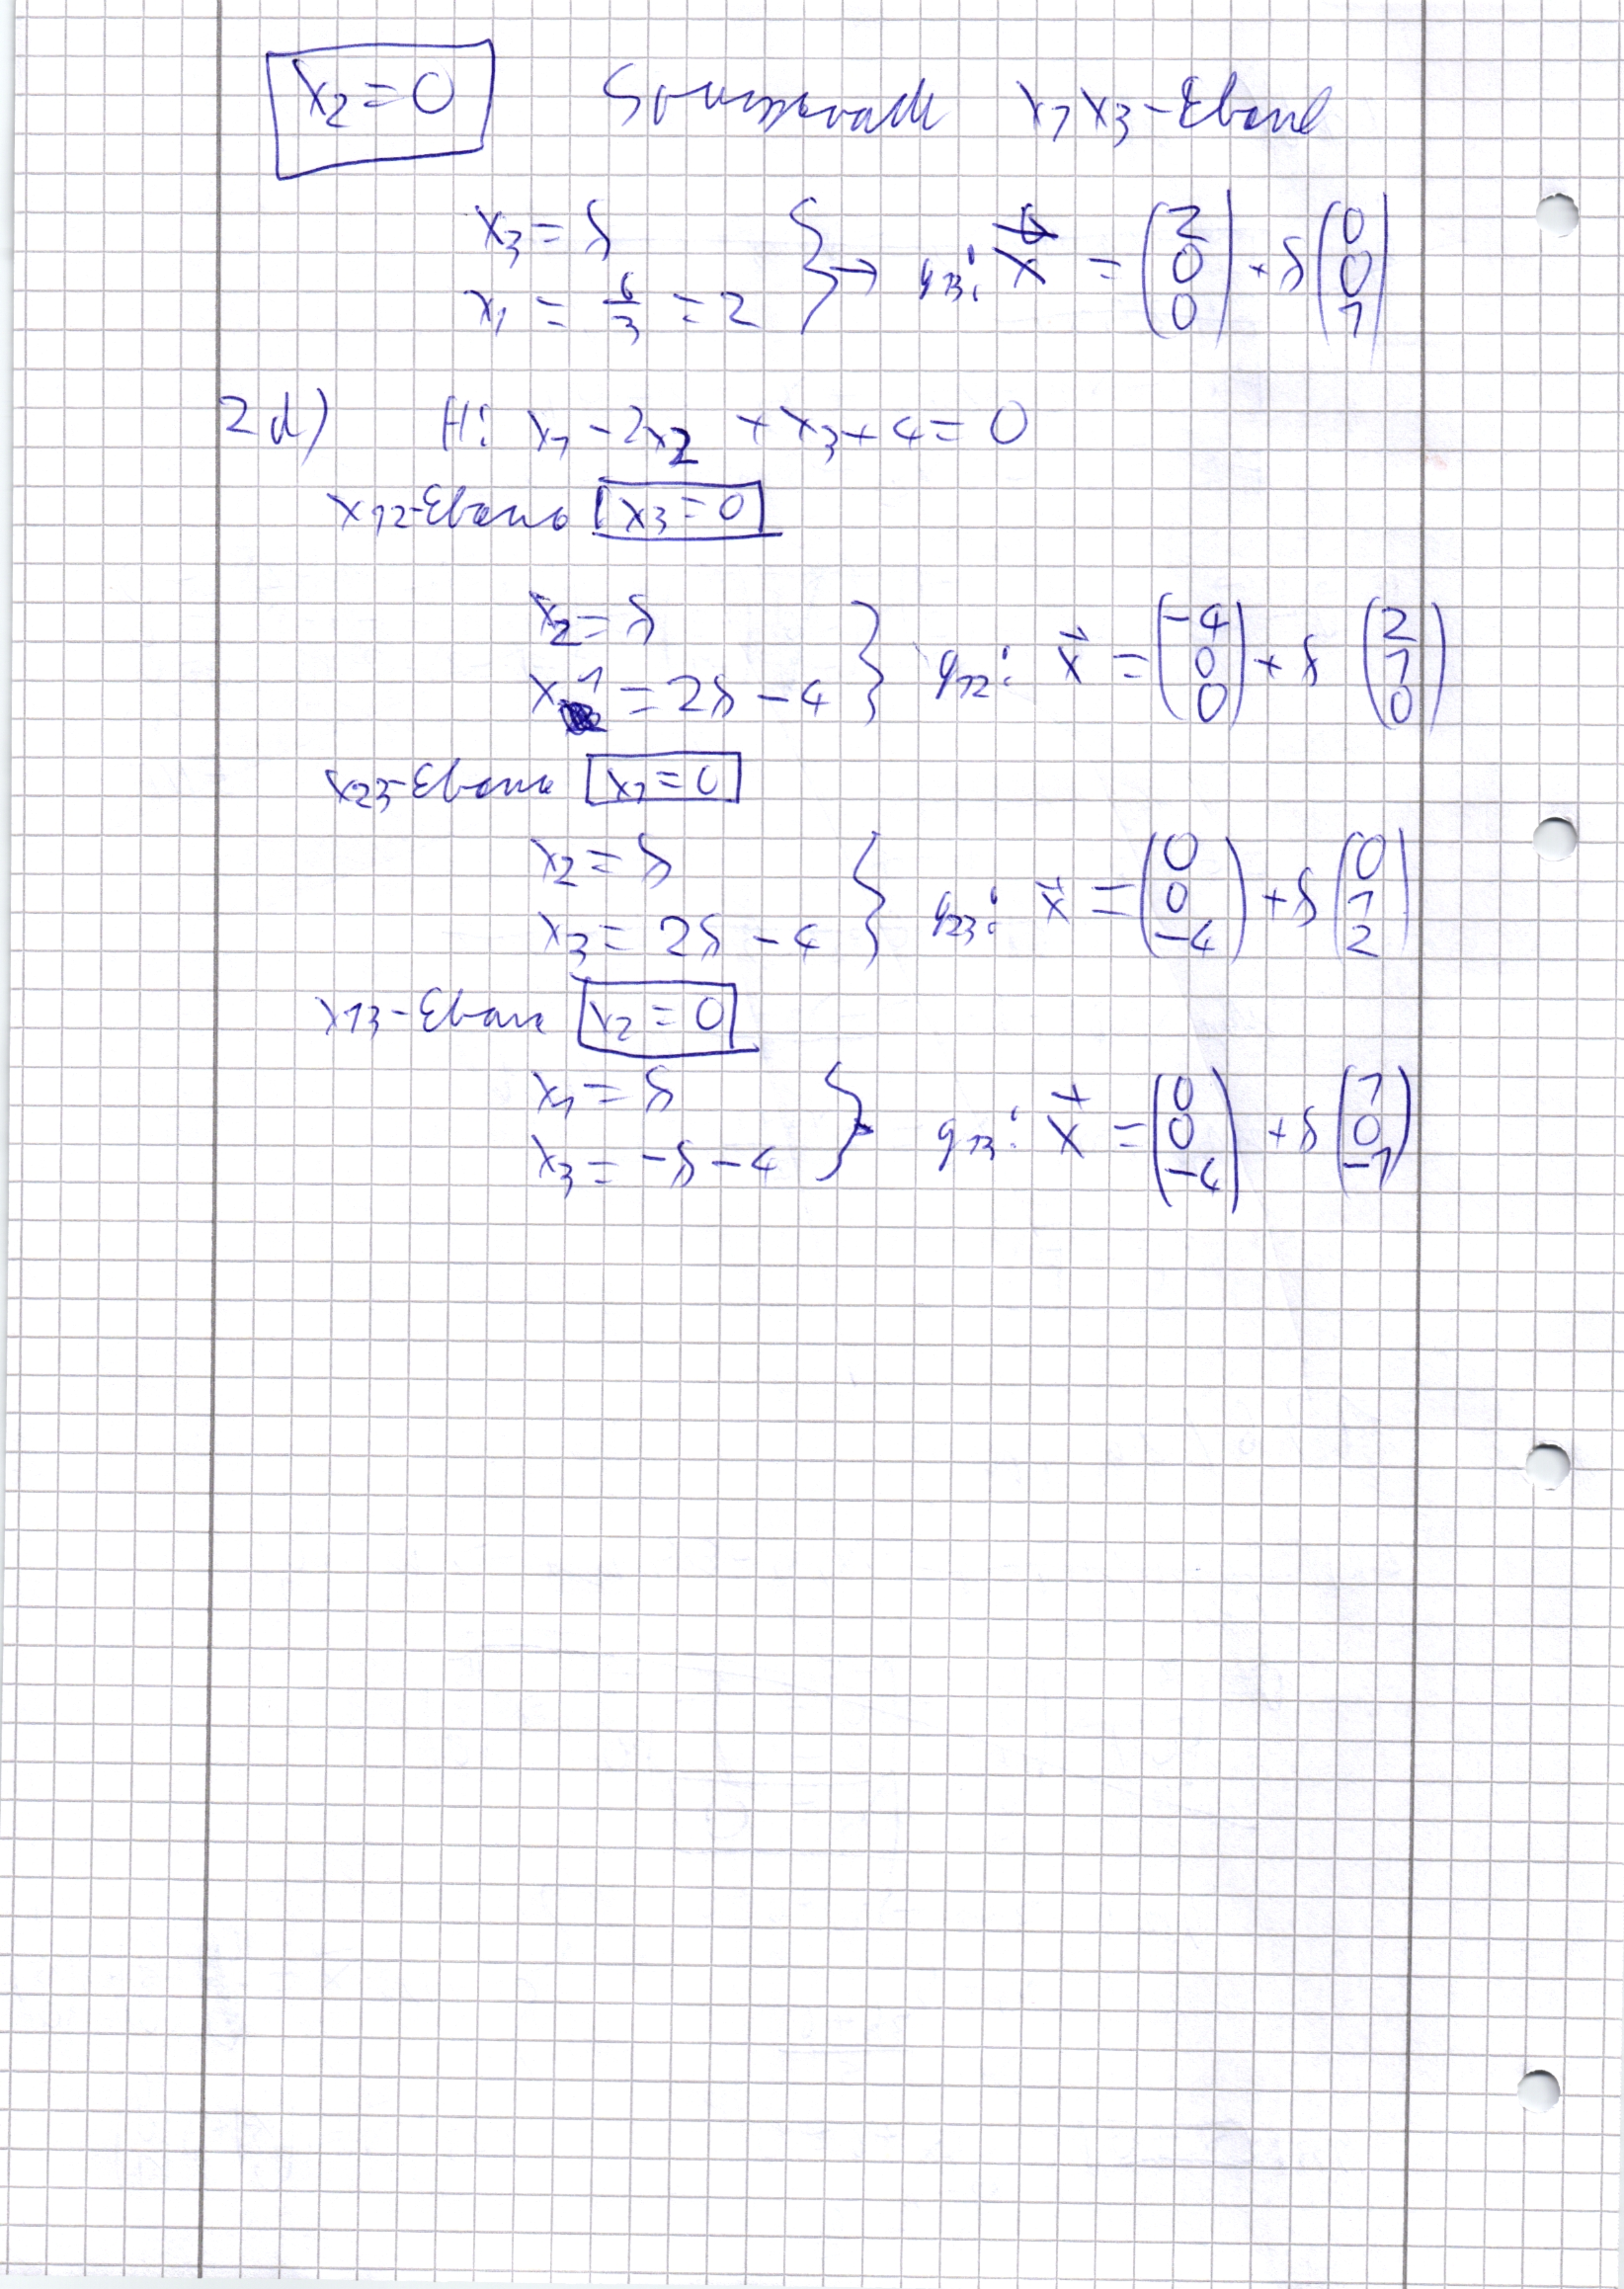 x₂ = 0 x₁x₃-Ebene
x₃ = s
x₁ = 6/3 = 2 } → g₁₃: x⃗ = (2 0 0) + s (0 0 1)
2d) H: x₁ - 2x₂ + x₃ + 4 = 0
x₁₂-Ebene x₃ = 0
x₂ = s
x₁ = 2s - 4 } g₁₂: x⃗ = (-4 0 0) + s (2 1 0)
x₂₃-Ebene x₁ = 0
x₂ = s
x₃ = 2s - 4 } g₂₃: x⃗ = (0 0 -4) + s (0 1 2)
x₁₃-Ebene x₂ = 0
x₁ = s
x₃ = -s - 4 } g₁₃: x⃗ = (0 0 -4) + s (1 0 -1)